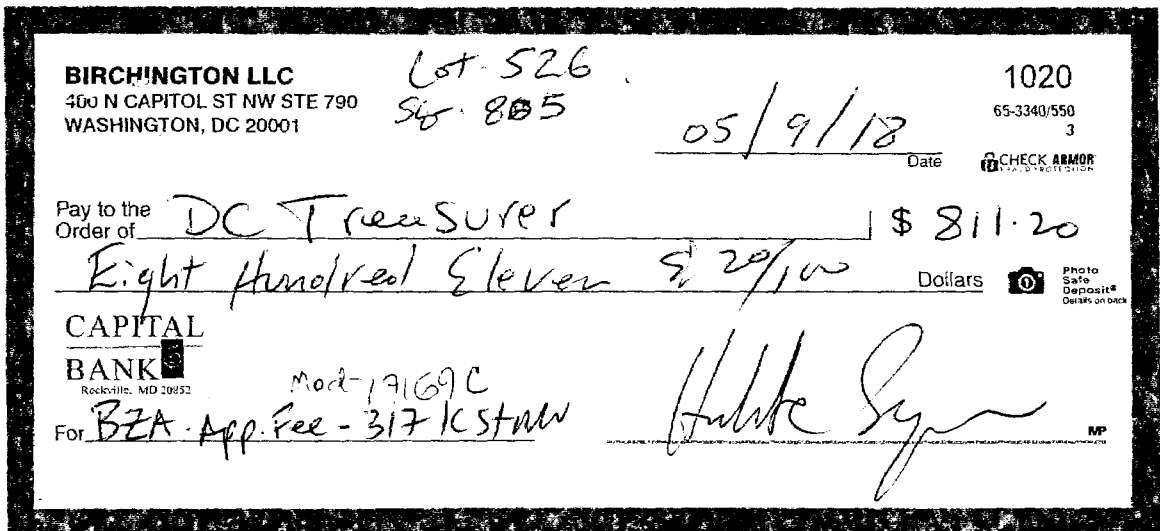 BIRCHINGTON LLC
400 N CAPITOL ST NW STE 790
WASHINGTON, DC 20001
Lot. 526
Sq. 805
1020
65-3340/550
3
05/9/18
Date
CHECK ARMOR
Pay to the
Order of DC Treasurer $ 811.20
Eight Hundred Eleven & 20/100 Dollars
Photo
Safe
Deposit®
Details on back
CAPITAL
BANK
Rockville, MD 20852
Mod-17169C
For BZA. App. Fee - 317 K St NW
MP